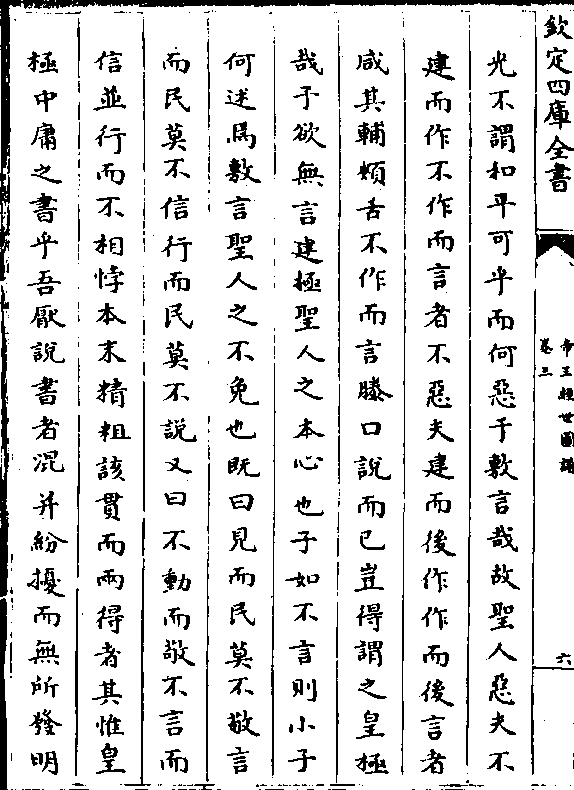 欽定四庫全書
帝王經世圖譜
卷三
六
光不謂和平可乎而何惡于敷言哉故聖人惡夫不
建而作不作而言者不惡夫建而後作作而後言者
咸其輔頰舌不作而言滕口說而已豈得謂之皇極
哉予欲無言建極聖人之本心也子如不言則小子
何述焉敷言聖人之不免也既曰見而民莫不敬言
而民莫不信行而民莫不說又曰不動而敬不言而
信並行而不相悖本末精粗該貫而兩得者其惟皇
極中庸之書乎吾厭說書者混并紛擾而無所發明